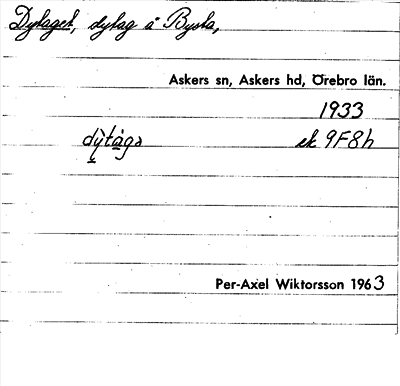 Dytaget, dytag å Bysta,
Askers sn, Askers hd, Örebro län.
1933
dỳtág​ə ek 9F8h
Per-Axel Wiktorsson 1963